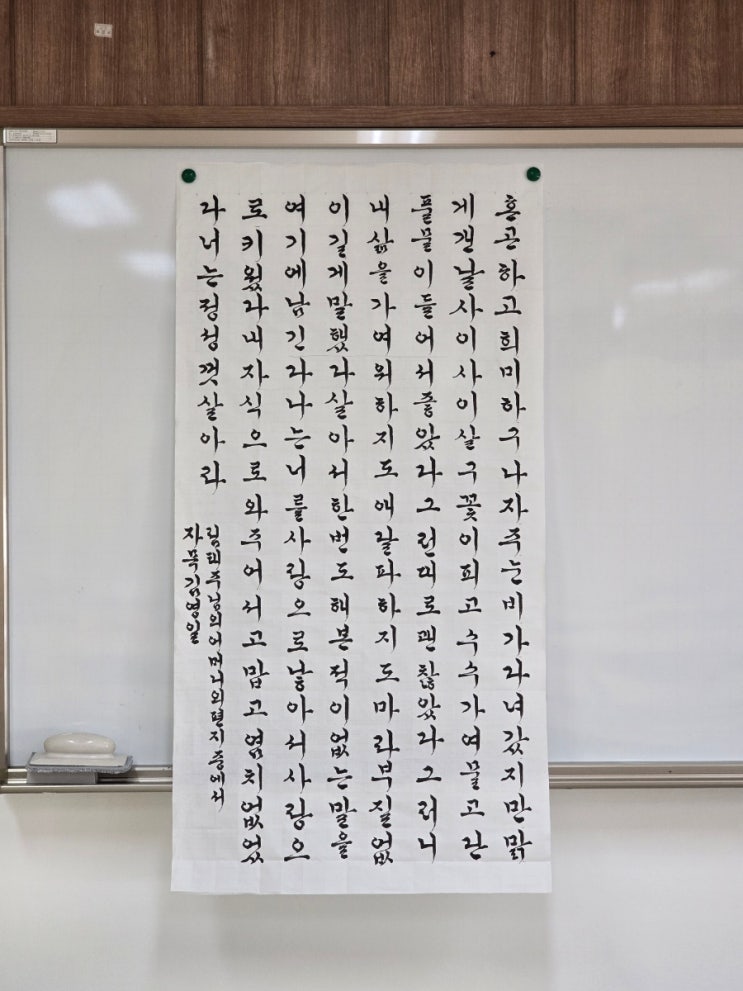 혼곤하고희미하구나자주눈비가다녀갔지만맑
게갠날사이사이살구꽃이피고수수가여물고단
풍물이들어서좋았다그런대로괜찮았다그러니
내삶을가여워하지도애달파하지도마라부질없
이길게말했다살아서한번도해본적이없는말을
여기에남긴다나는너를사랑으로낳아서사랑으
로키웠다내자식으로와주어서고맙고염치없었
다너는정성껏살아라
림태주님의어머니의편지중에서
자묵김영일